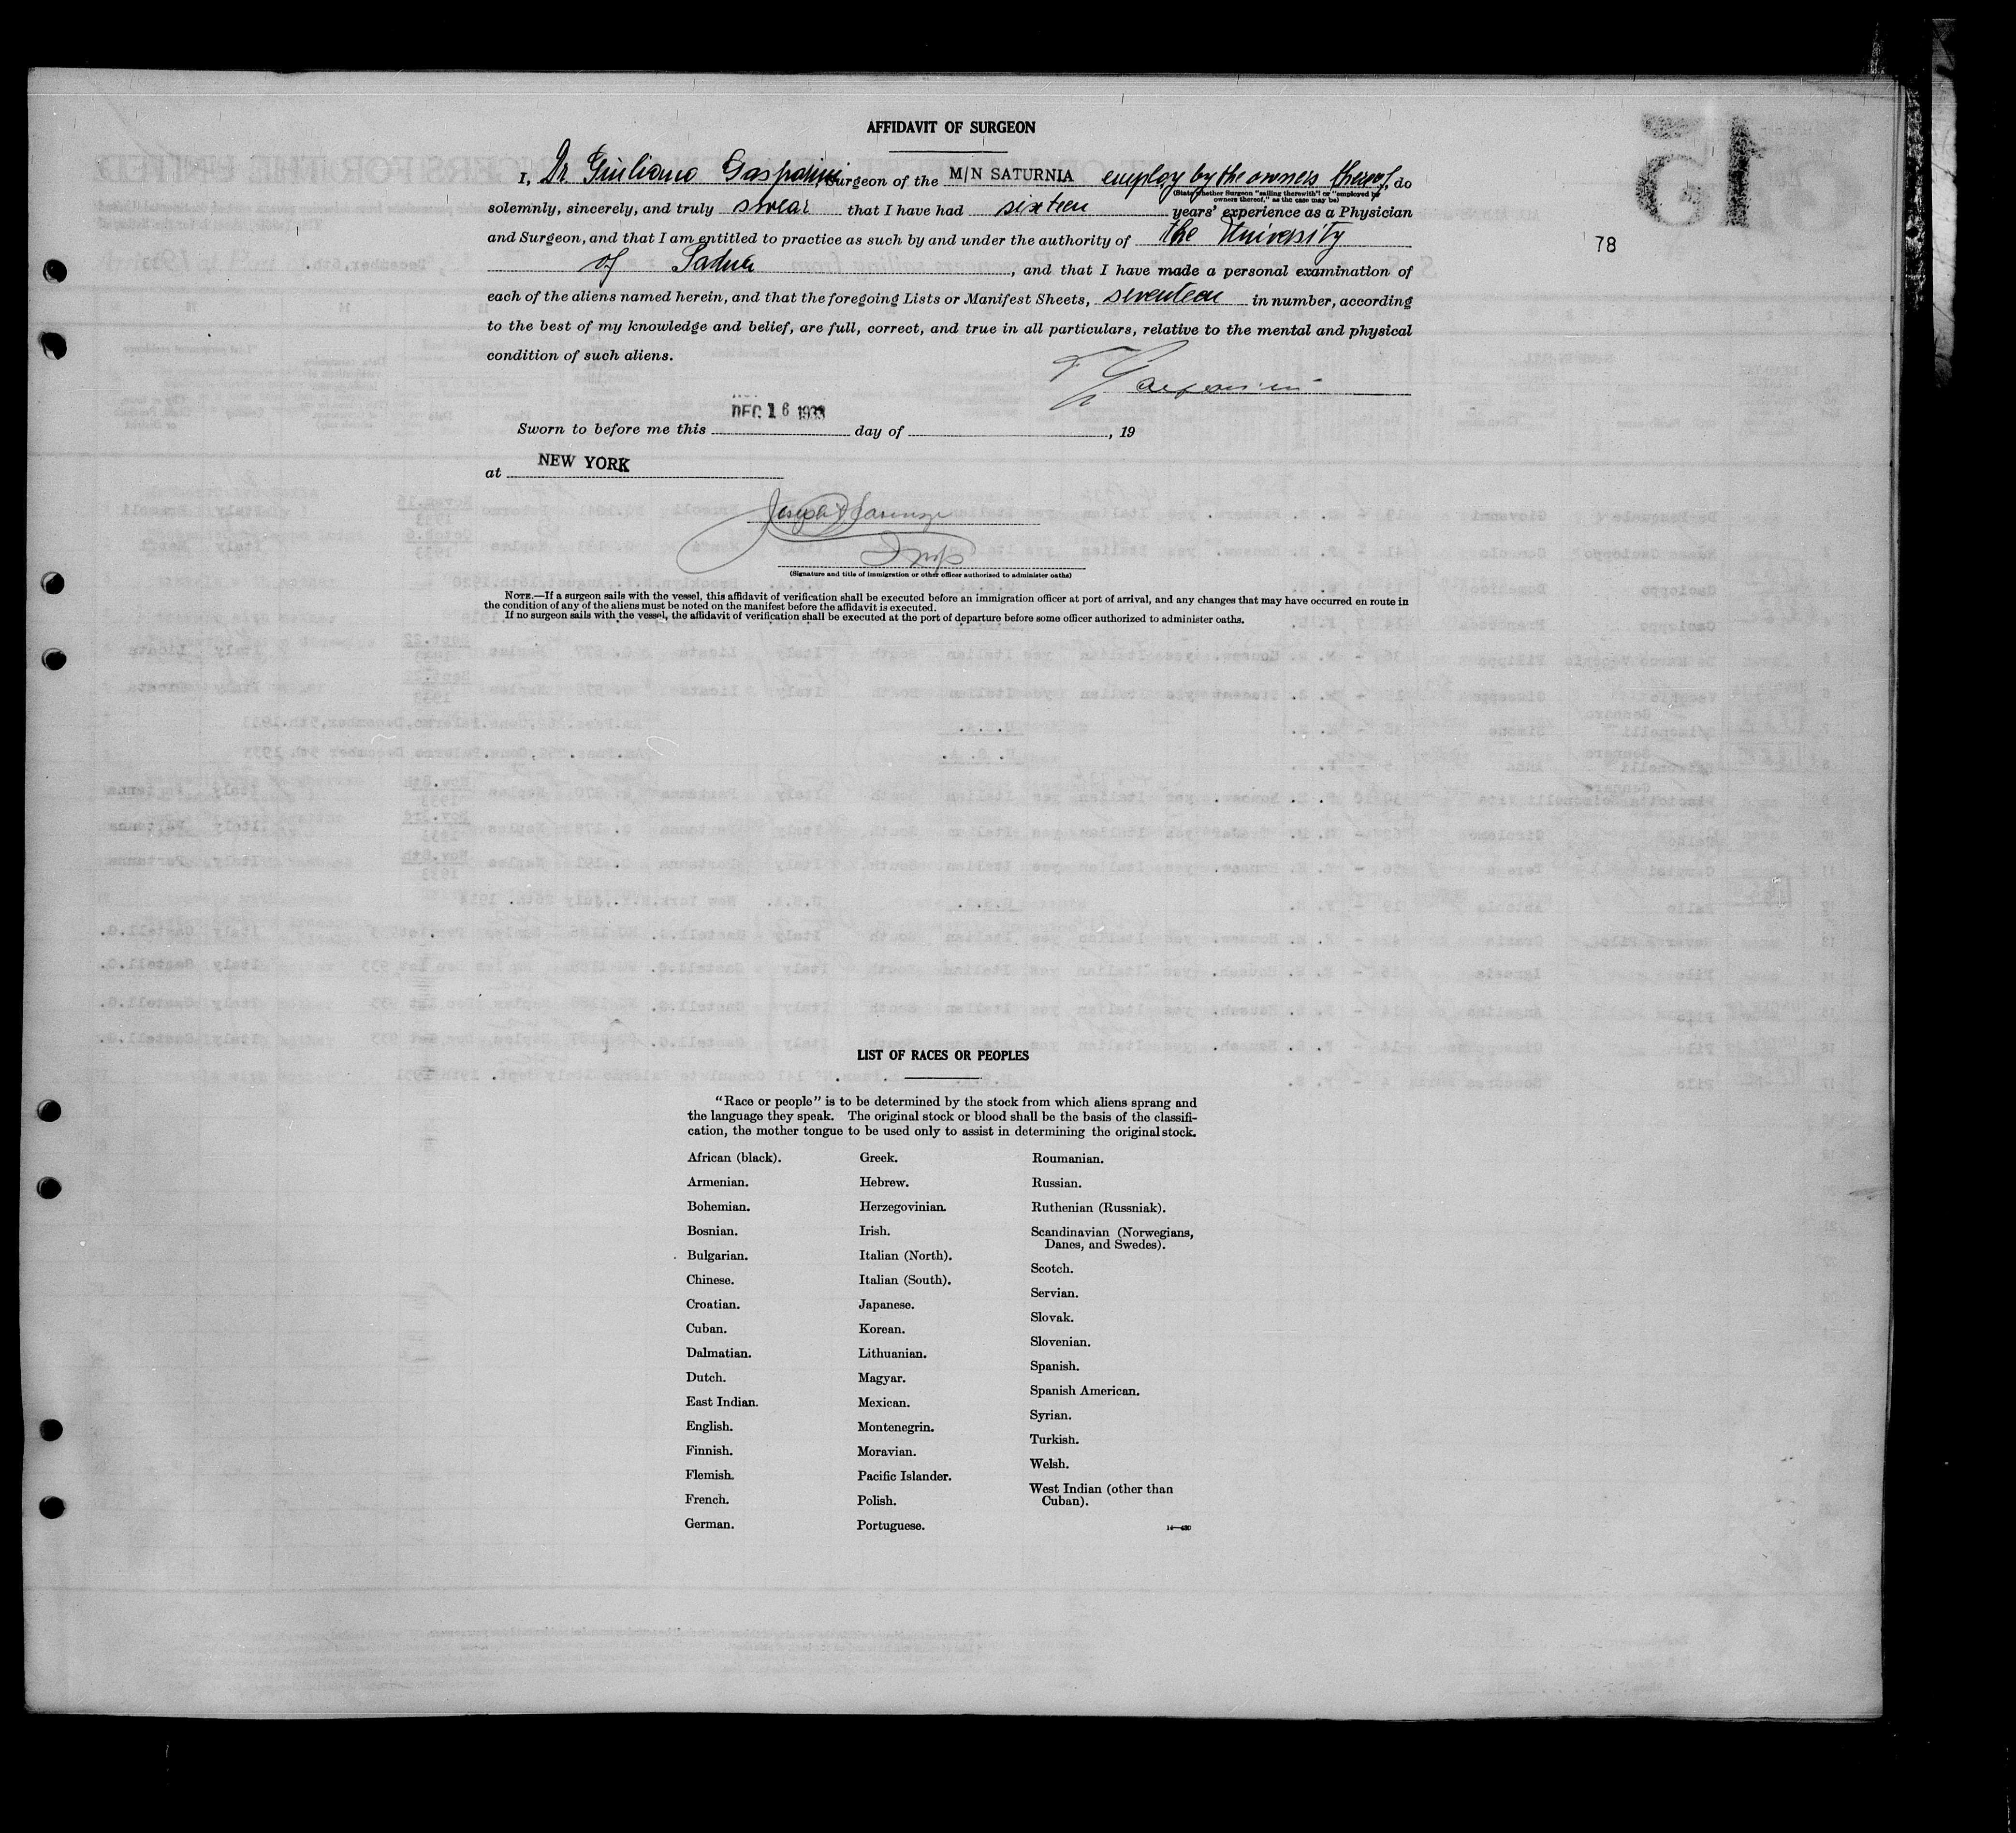 AFFIDAVIT OF SURGEON
I, Dr Giuliano Gasparini, Surgeon of the M/N SATURNIA employ by the owners thereof, do
(State whether Surgeon "sailing therewith" or "employed by
owners thereof," as the case may be)
solemnly, sincerely, and truly swear that I have had sixteen years' experience as a Physician
and Surgeon, and that I am entitled to practice as such by and under the authority of the University
of Padua, and that I have made a personal examination of
each of the aliens named herein, and that the foregoing Lists or Manifest Sheets, seventeen in number, according
to the best of my knowledge and belief, are full, correct, and true in all particulars, relative to the mental and physical
condition of such aliens.
Gasparini
DEC 16 1933
Sworn to before me this day of , 19
at NEW YORK
Joseph
Insp
(Signature and title of immigration or other officer authorized to administer oaths)
NOTE.—If a surgeon sails with the vessel, this affidavit of verification shall be executed before an immigration officer at port of arrival, and any changes that may have occurred en route in
the condition of any of the aliens must be noted on the manifest before the affidavit is executed.
If no surgeon sails with the vessel, the affidavit of verification shall be executed at the port of departure before some officer authorized to administer oaths.
15
78
LIST OF RACES OR PEOPLES
"Race or people" is to be determined by the stock from which aliens sprang and
the language they speak. The original stock or blood shall be the basis of the classifi-
cation, the mother tongue to be used only to assist in determining the original stock.
African (black).
Armenian.
Bohemian.
Bosnian.
Bulgarian.
Chinese.
Croatian.
Cuban.
Dalmatian.
Dutch.
East Indian.
English.
Finnish.
Flemish.
French.
German.
Greek.
Hebrew.
Herzegovinian.
Irish.
Italian (North).
Italian (South).
Japanese.
Korean.
Lithuanian.
Magyar.
Mexican.
Montenegrin.
Moravian.
Pacific Islander.
Polish.
Portuguese.
Roumanian.
Russian.
Ruthenian (Russniak).
Scandinavian (Norwegians,
Danes, and Swedes).
Scotch.
Servian.
Slovak.
Slovenian.
Spanish.
Spanish American.
Syrian.
Turkish.
Welsh.
West Indian (other than
Cuban).